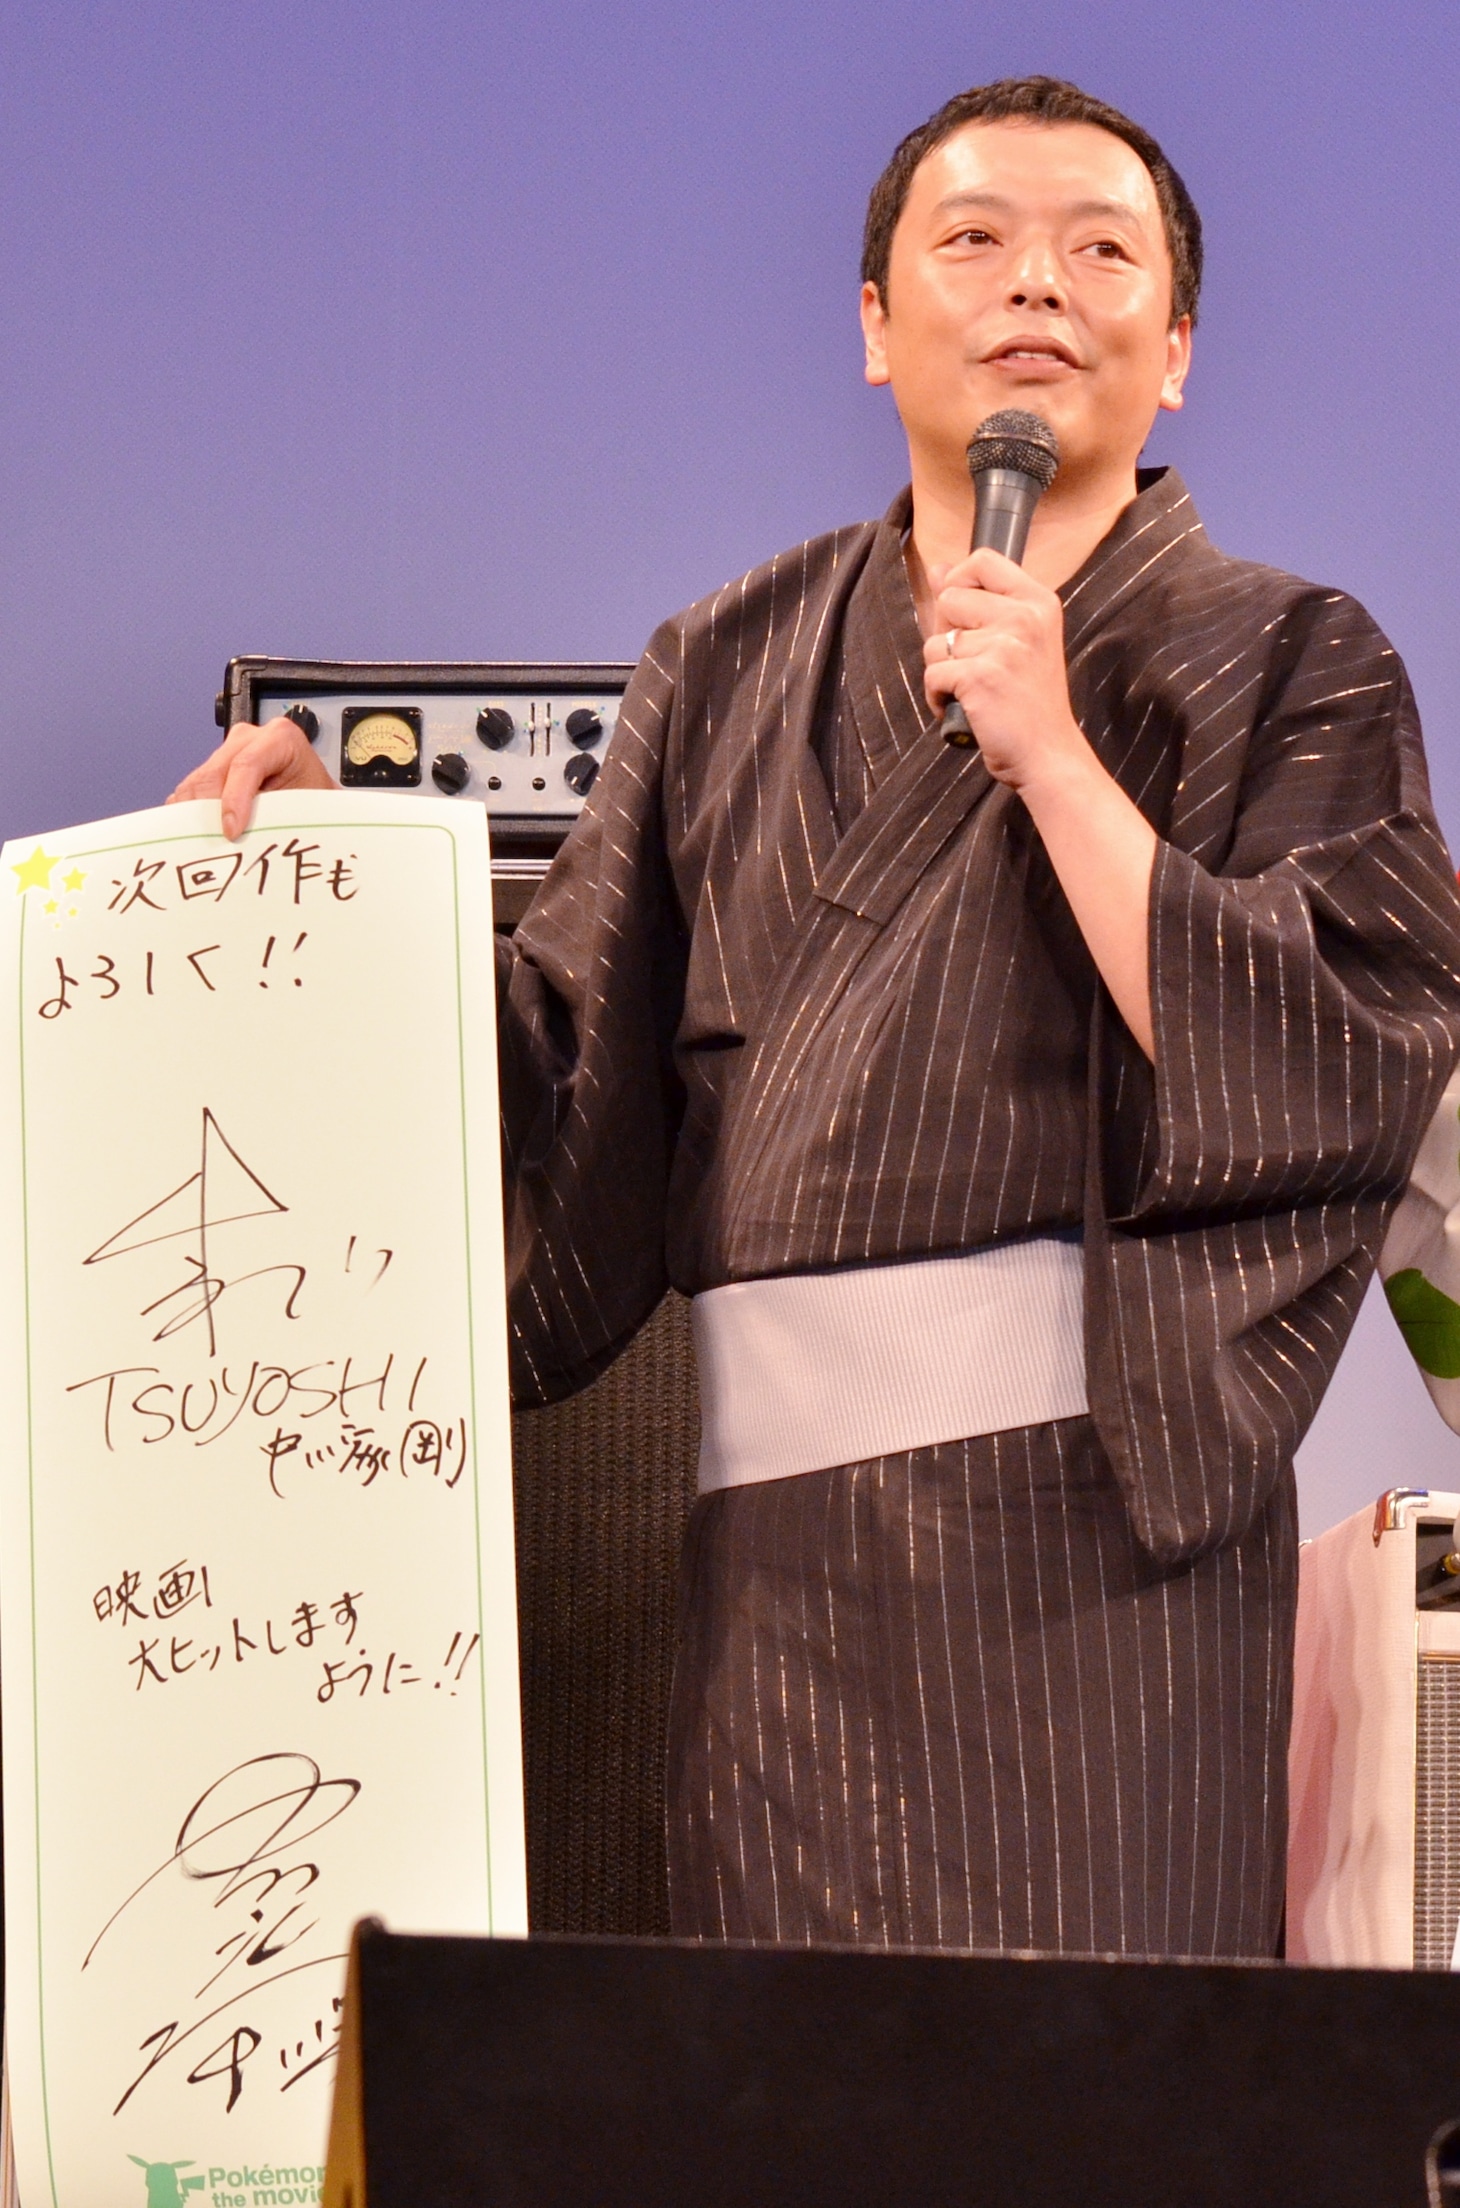 次回作も
よろしく!!
TSUYOSHI
中川家(剛)
映画
大ヒットします
ように!!
Pokémon
the movie